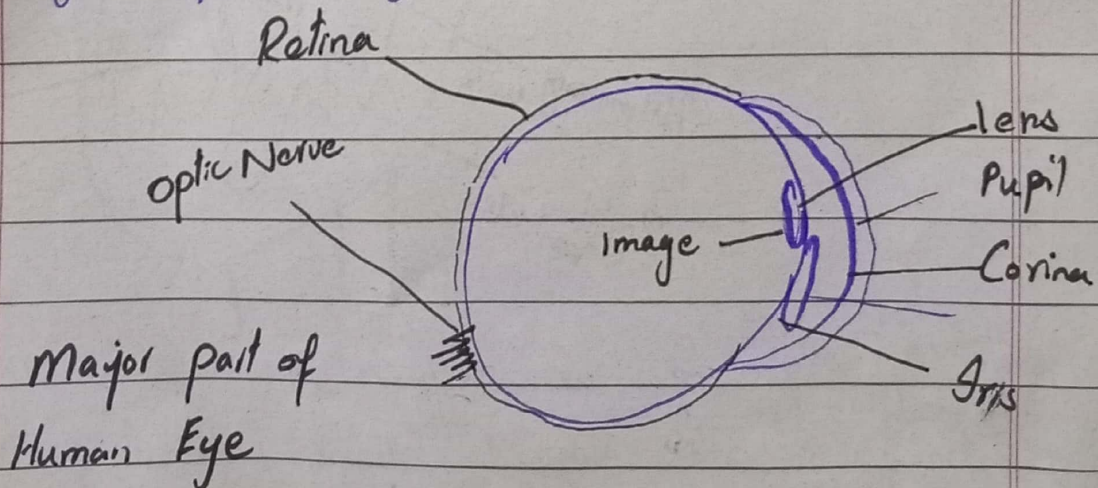 Retina
Optic Nerve
lens
Pupil
Image
Corina
Iris
Major part of
Human Eye